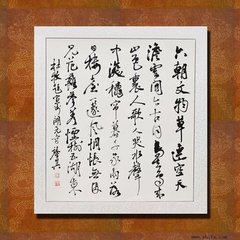 六朝文物草連空天
澹雲閒今古同鳥去鳥來
山色裏人歌人哭水聲
中深秋簾幕千家雨落
日樓臺一篴風惆悵無
見范蠡參差煙樹五湖東
杜牧題宣州開元寺